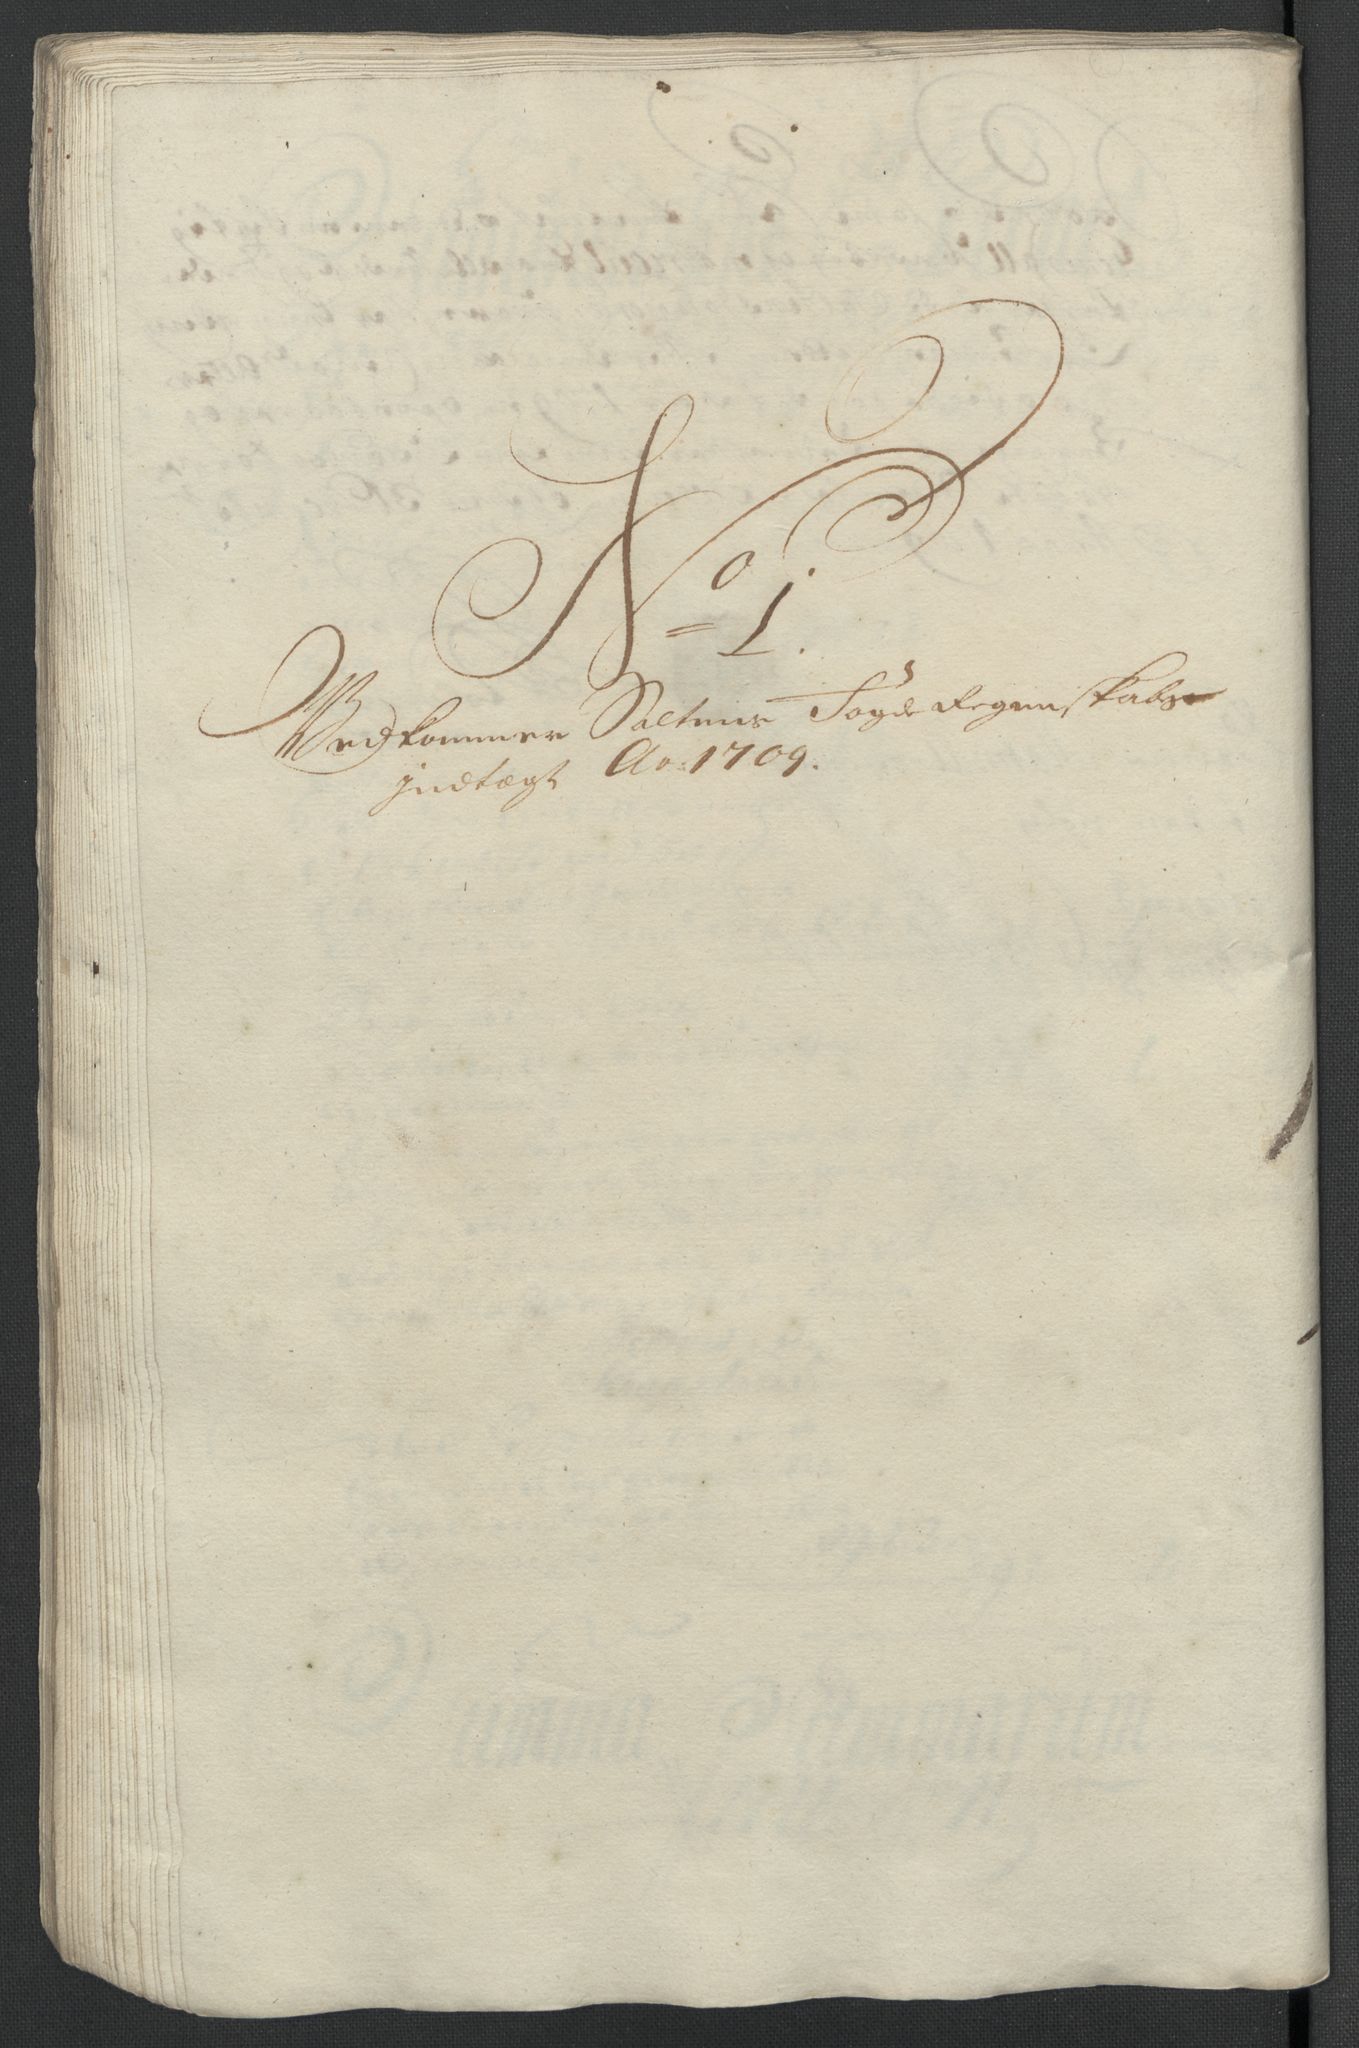 No 1.
Vedkommer Saltens Fogderegenskabs
Indtægt Ao: 1709.